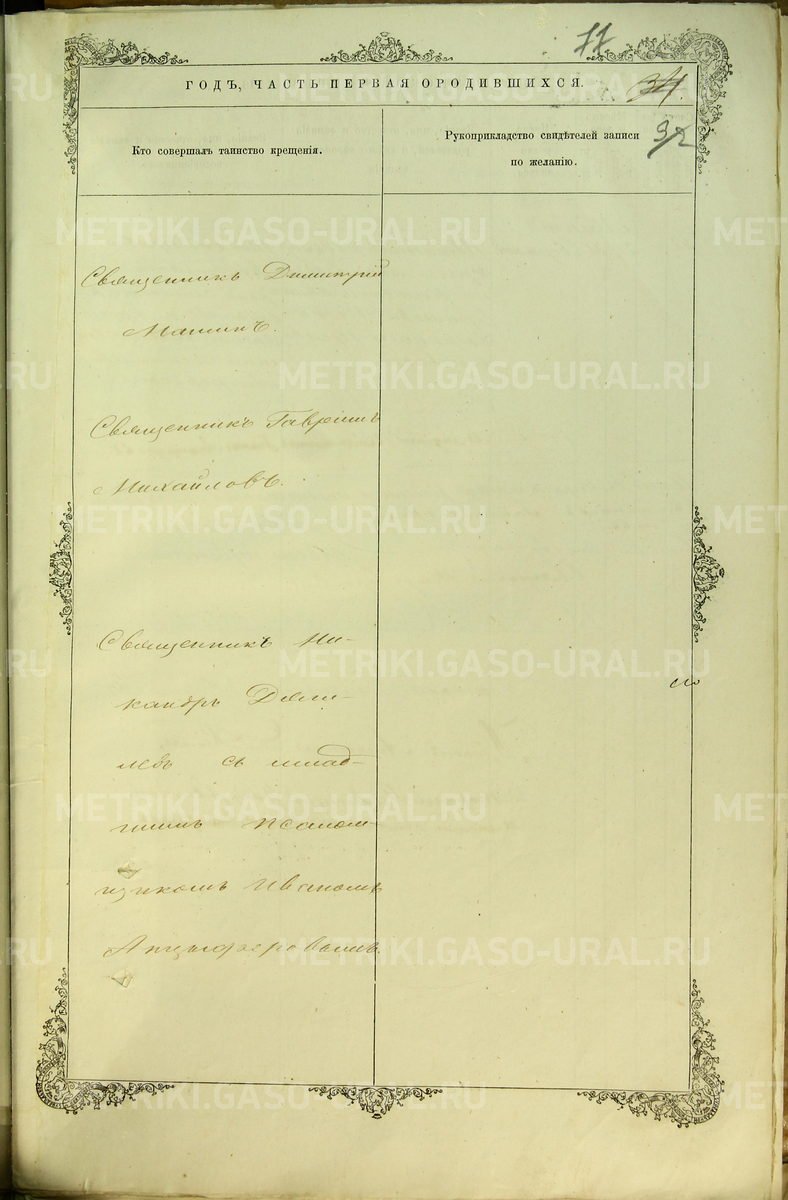 77
34.
ГОДЪ, ЧАСТЬ ПЕРВАЯ ОРОДИВШИХСЯ.
Кто совершалъ таинство крещенія.
Рукоприкладство свидѣтелей записи
по желанію.
Священникъ Димитрій
Священникъ Гавріилъ
Михайловъ.
Священникъ Ни-
кандръ
съ млад-
шимъ псалом-
щикомъ Иваномъ
METRIKI.GASO-URAL.RU